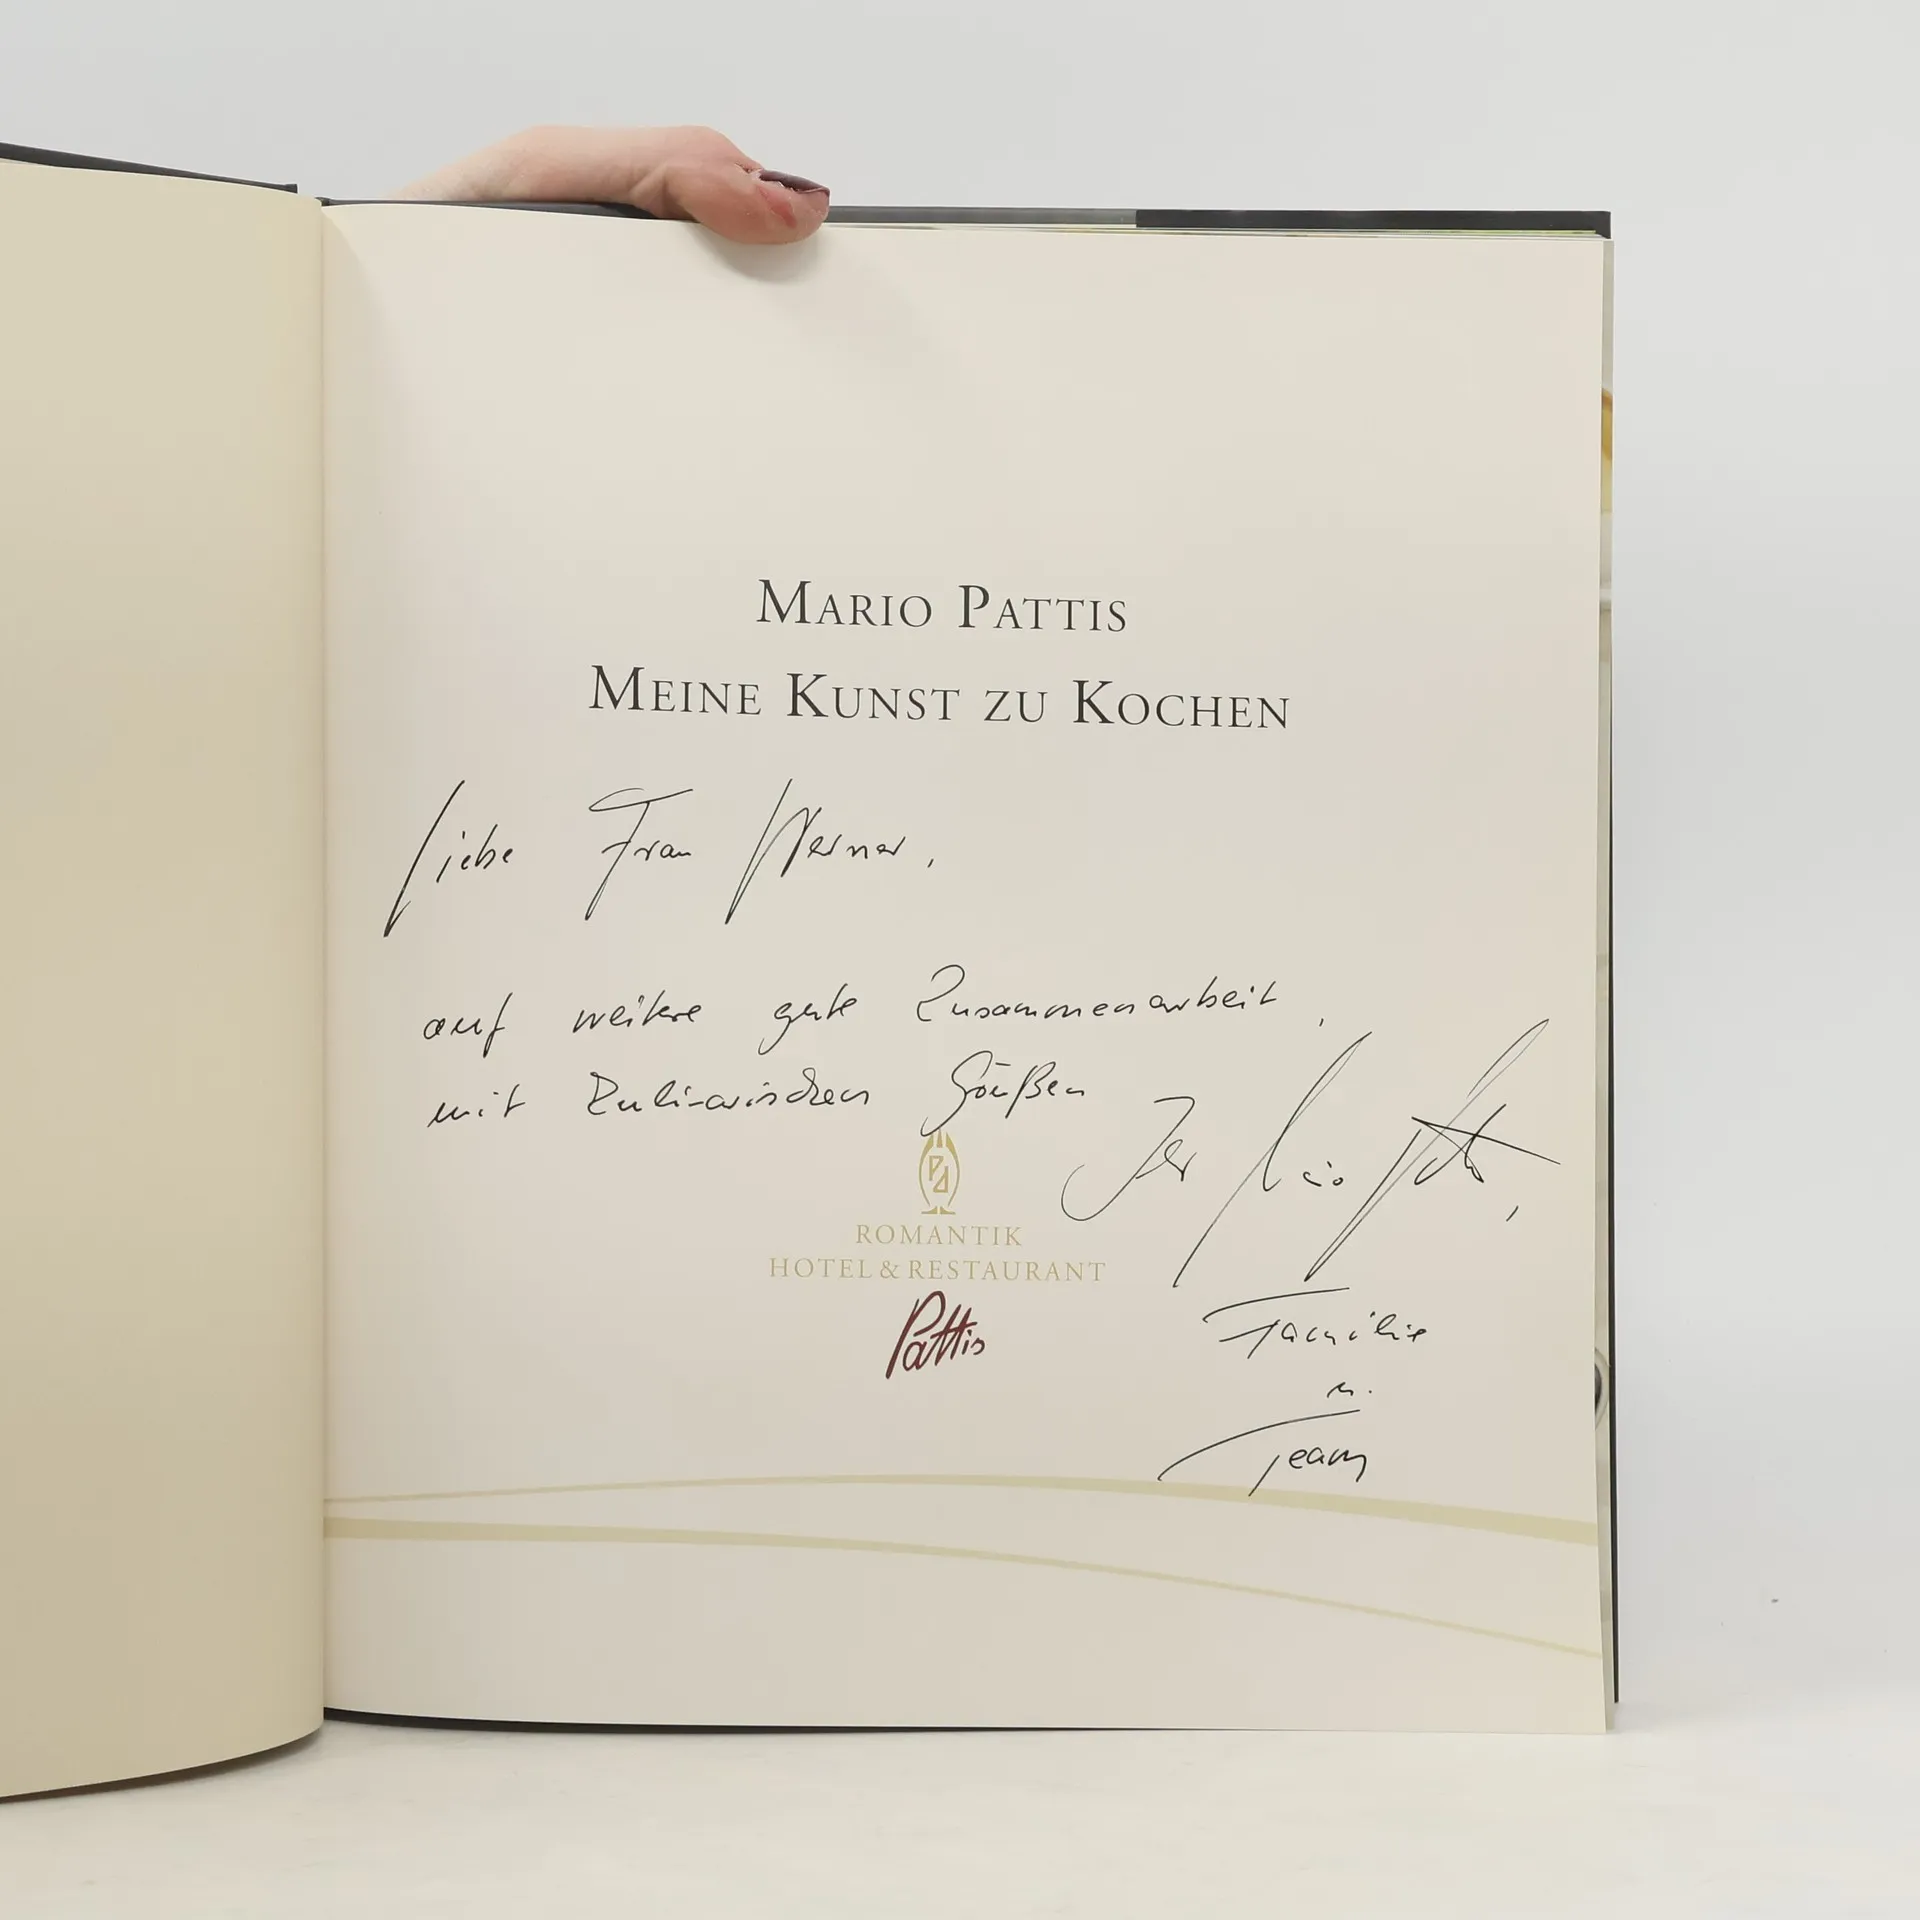 MARIO PATTIS
MEINE KUNST ZU KOCHEN
Liebe Frau Werner,
auf weitere gute Zusammenarbeit,
mit Kulinarischen Grüßen
Ihr Mario Pattis,
ROMANTIK
HOTEL & RESTAURANT
Pattis
Familie
u.
Team